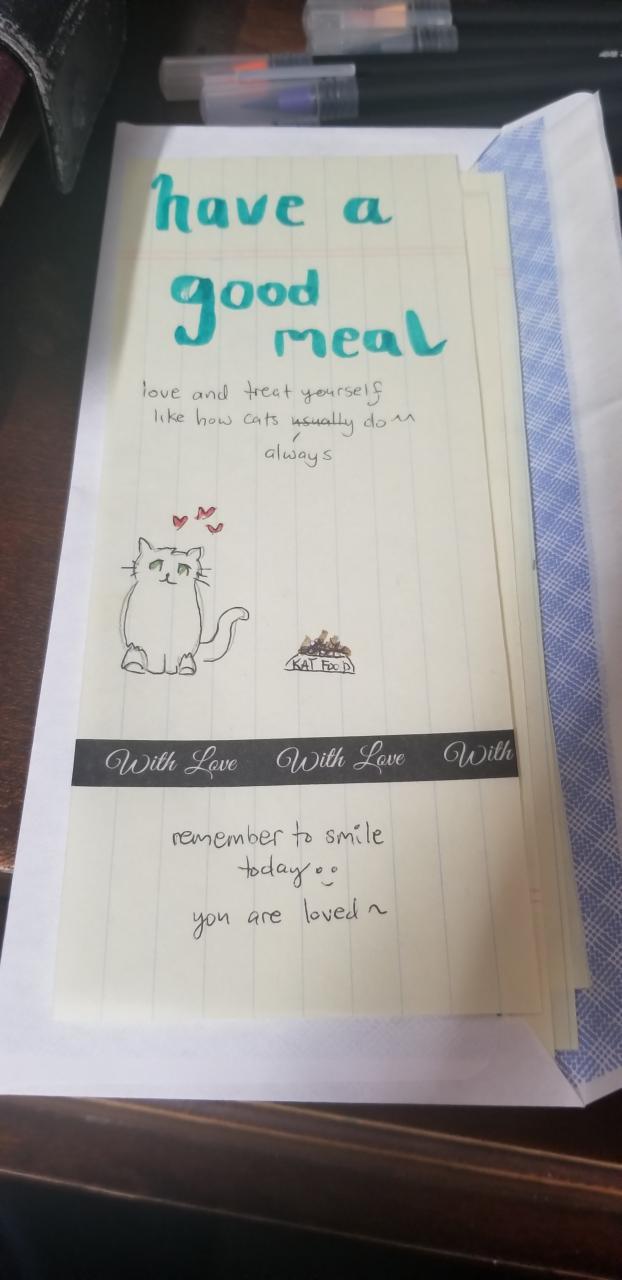 have a
good
meal
love and treat yourself
like how cats usually do ~
always
KAT FOOD
With Love With Love With
remember to smile
today
you are loved ~